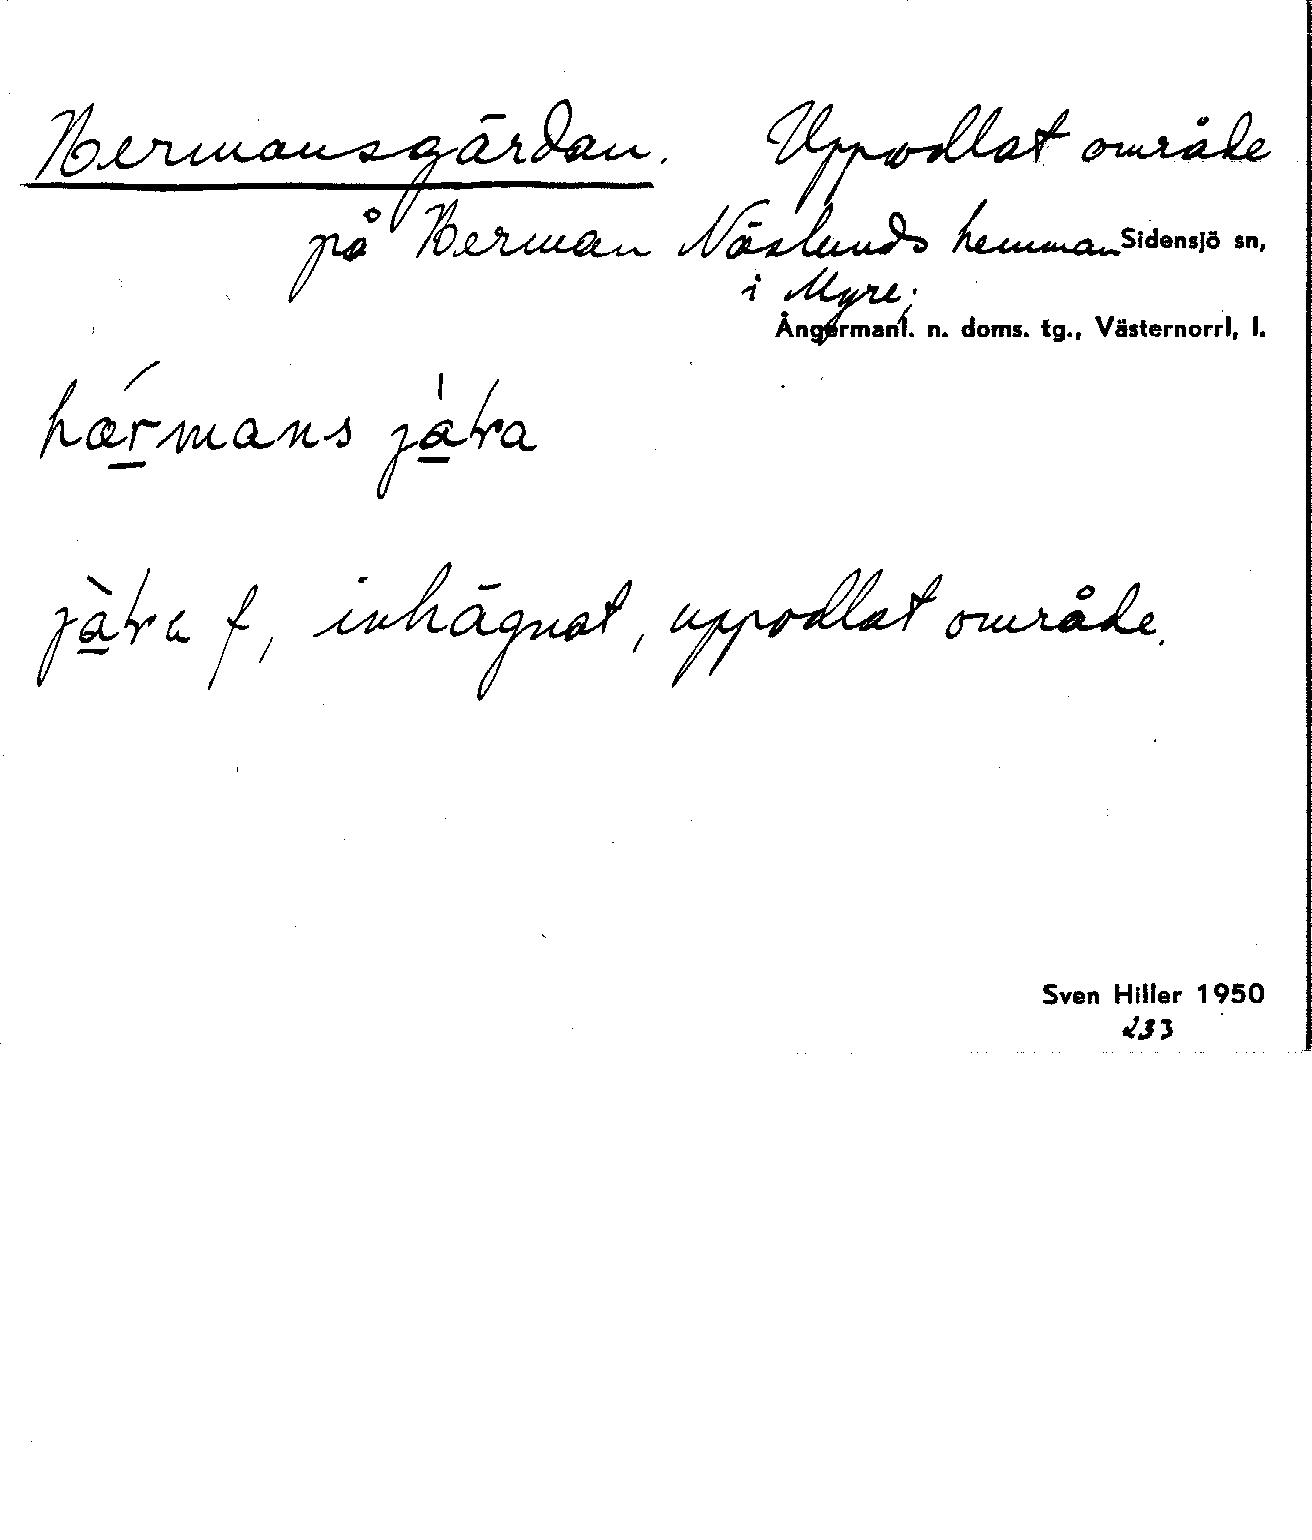 Hermansgärdan. Uppodlat område
på Herman Näslunds hemman Sidensjö sn,
i Myre.
Ångermanl. n. doms. tg., Västernorrl, l.
hærmans jàƚra
jàƚra f, inhägnat, uppodlat område.
Sven Hiller 1950
233